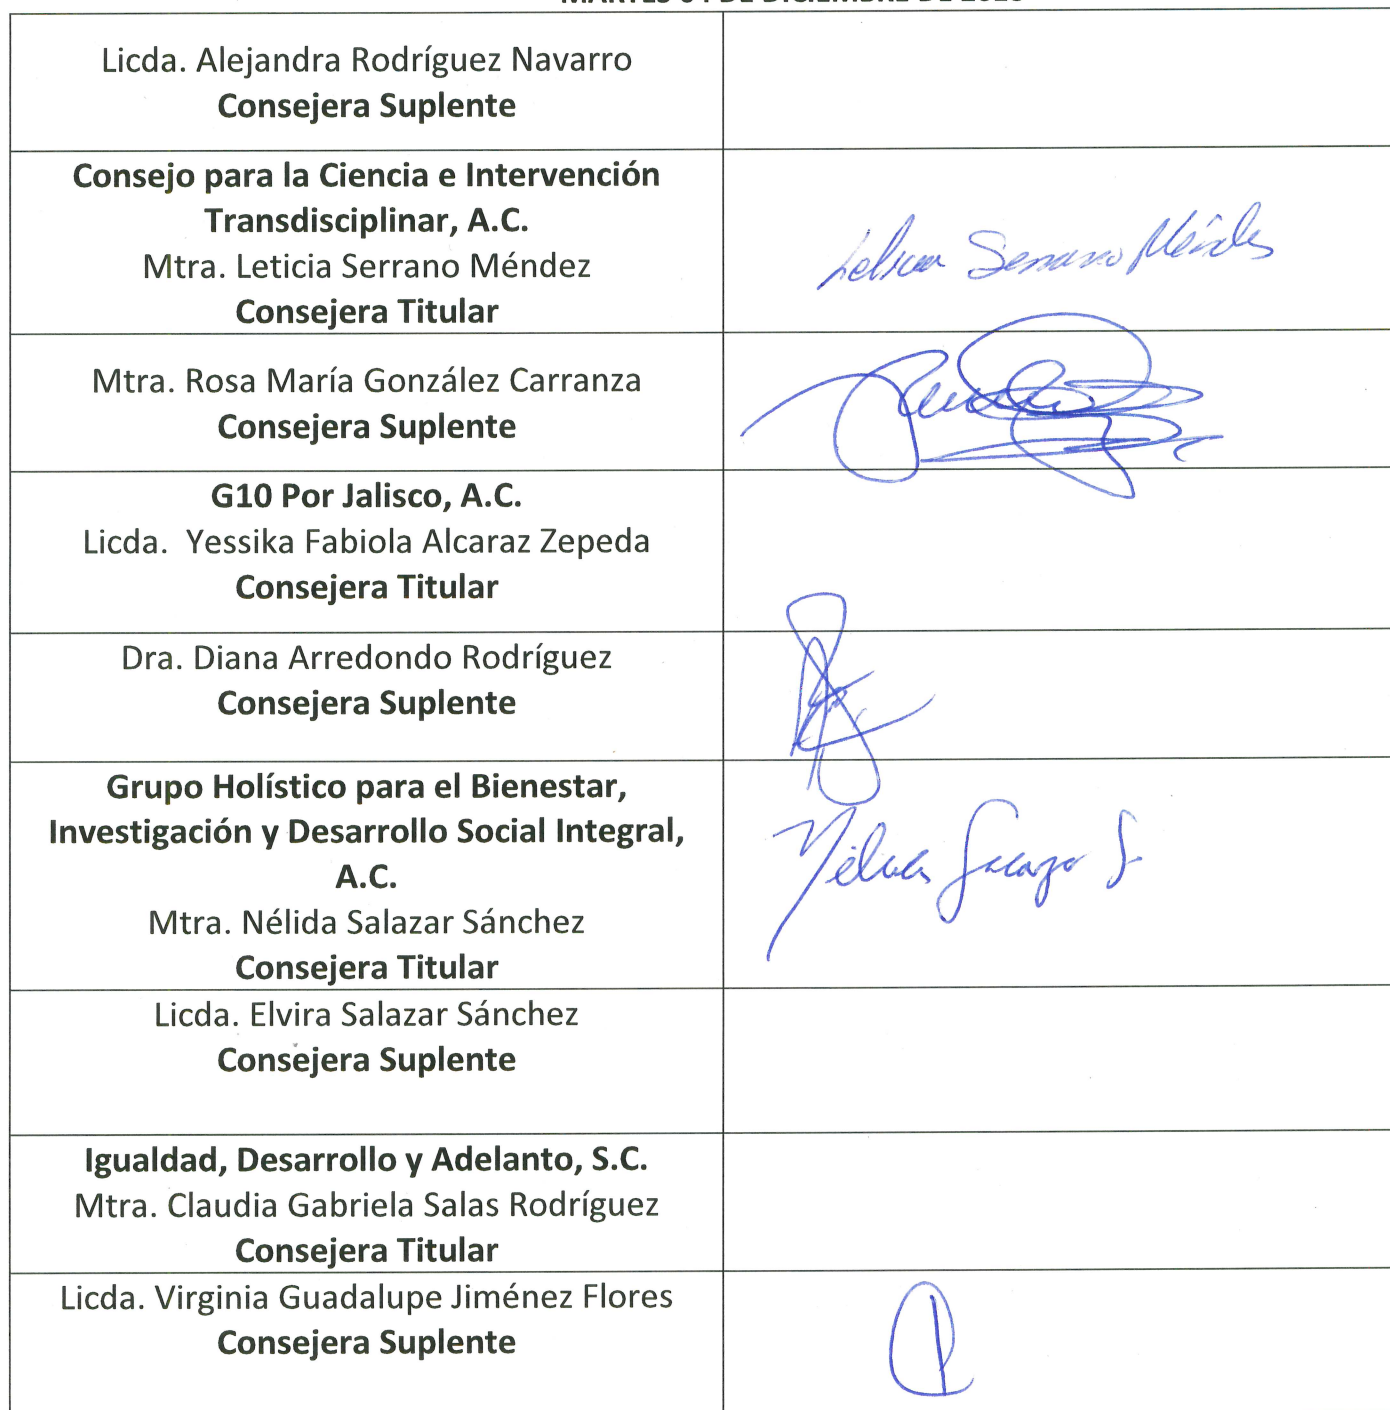 Licda. Alejandra Rodríguez Navarro
Consejera Suplente
Consejo para la Ciencia e Intervención
Transdisciplinar, A.C.
Mtra. Leticia Serrano Méndez
Consejera Titular
Serrano Méndez
Mtra. Rosa María González Carranza
Consejera Suplente
G10 Por Jalisco, A.C.
Licda. Yessika Fabiola Alcaraz Zepeda
Consejera Titular
Dra. Diana Arredondo Rodríguez
Consejera Suplente
Grupo Holístico para el Bienestar,
Investigación y Desarrollo Social Integral,
A.C.
Mtra. Nélida Salazar Sánchez
Consejera Titular
Licda. Elvira Salazar Sánchez
Consejera Suplente
Igualdad, Desarrollo y Adelanto, S.C.
Mtra. Claudia Gabriela Salas Rodríguez
Consejera Titular
Licda. Virginia Guadalupe Jiménez Flores
Consejera Suplente